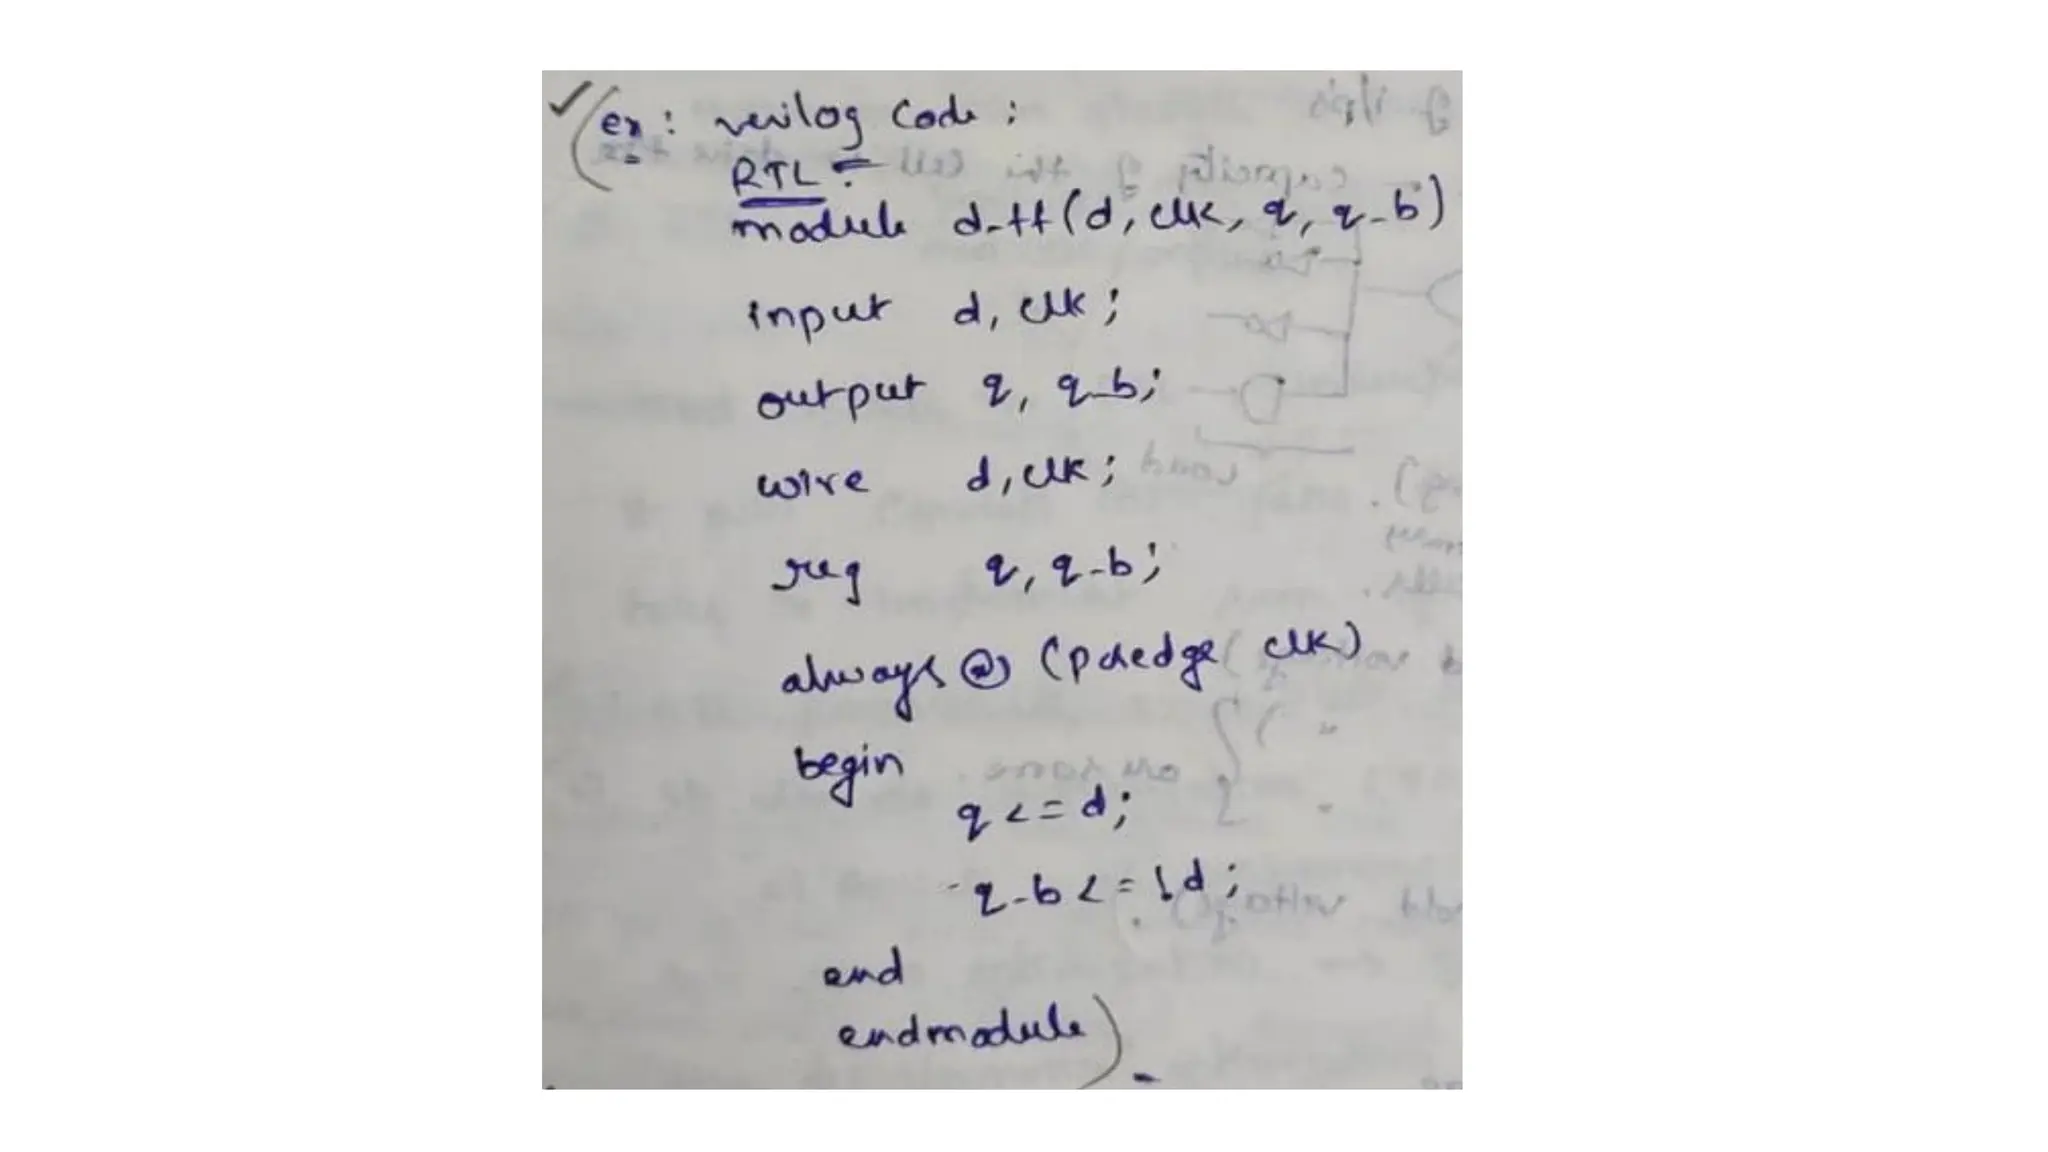 (ex: verilog code:
RTL:
module d-ff(d, clk, q, q-b)
input d, clk;
output q, q-b;
wire d, clk;
reg q, q-b;
always @ (posedge clk)
begin
q <= d;
q-b <= !d;
end
endmodule)